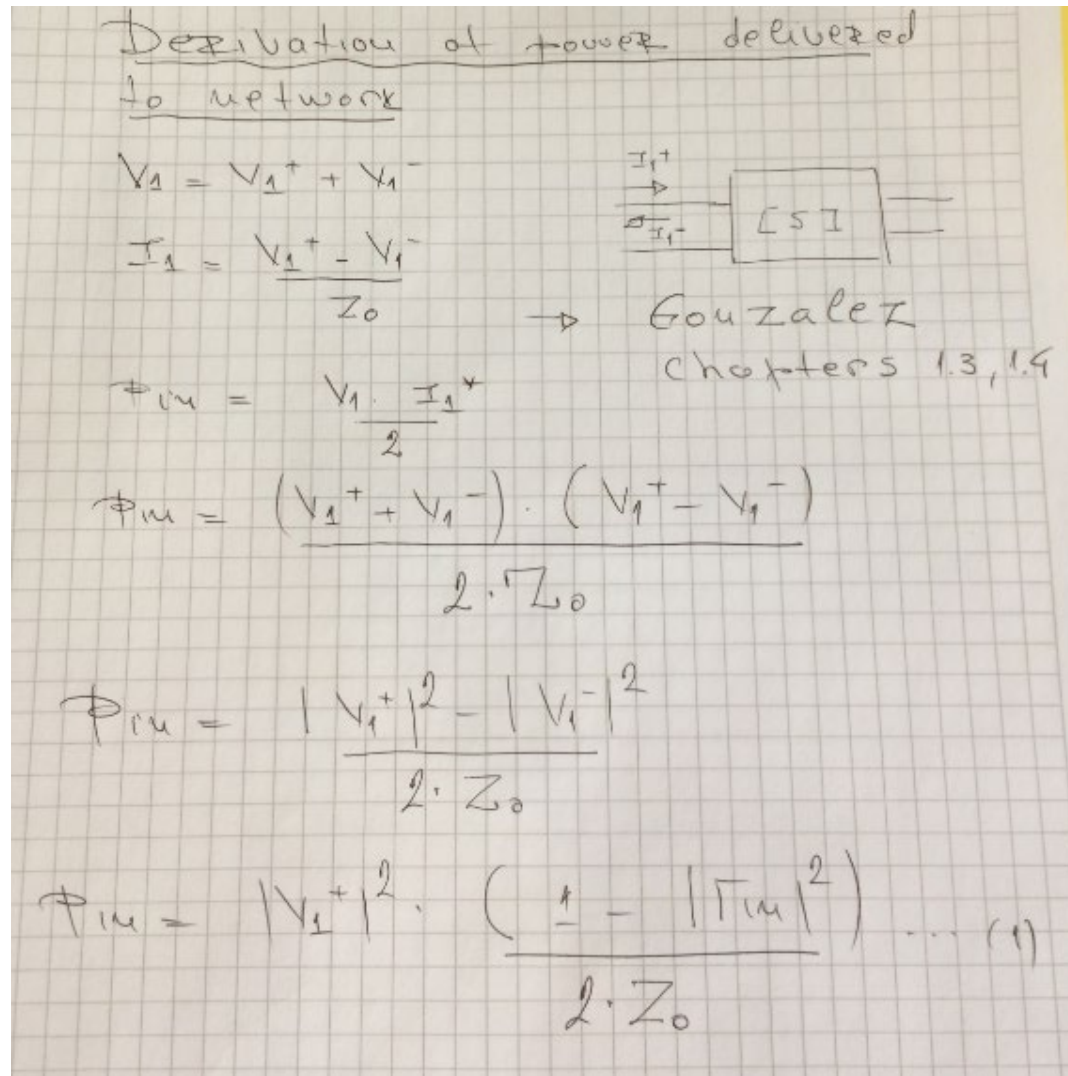 Derivation of power delivered
to network
V₁ = V₁⁺ + V₁⁻
I₁ = (V₁⁺ - V₁⁻) / Z₀
I₁⁺
I₁⁻
[S]
→ Gonzalez
chapters 1.3, 1.4
Pin = (V₁ · I₁*) / 2
Pin = (V₁⁺ + V₁⁻) · (V₁⁺ - V₁⁻) / 2·Z₀
Pin = |V₁⁺|² - |V₁⁻|² / 2·Z₀
Pin = |V₁⁺|² · (1 - |Γin|²) / 2·Z₀ ... (1)